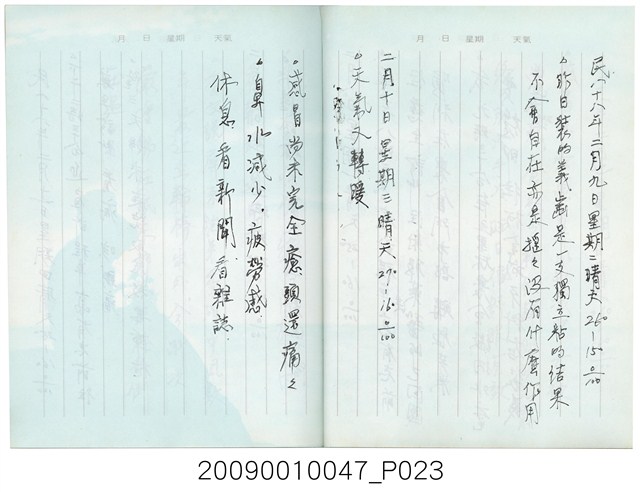 月 日 星期 天氣
民八十八年二月九日星期二晴天 26°-15° 0/100
。昨日裝的義齒是一支獨立粘的結果
不會自在亦是搖々沒有什麼作用
二月十日 星期三晴天 27°-16° 0/100
。天氣又轉暖
月 日 星期 天氣
。感冒尚未完全癒頭還痛々
。鼻水減少．疲勞感
休息．看新聞．看雜誌．
20090010047_P023